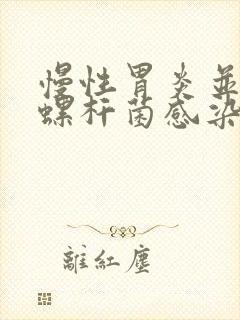 慢性胃炎並
螺杆菌感染
離紅塵